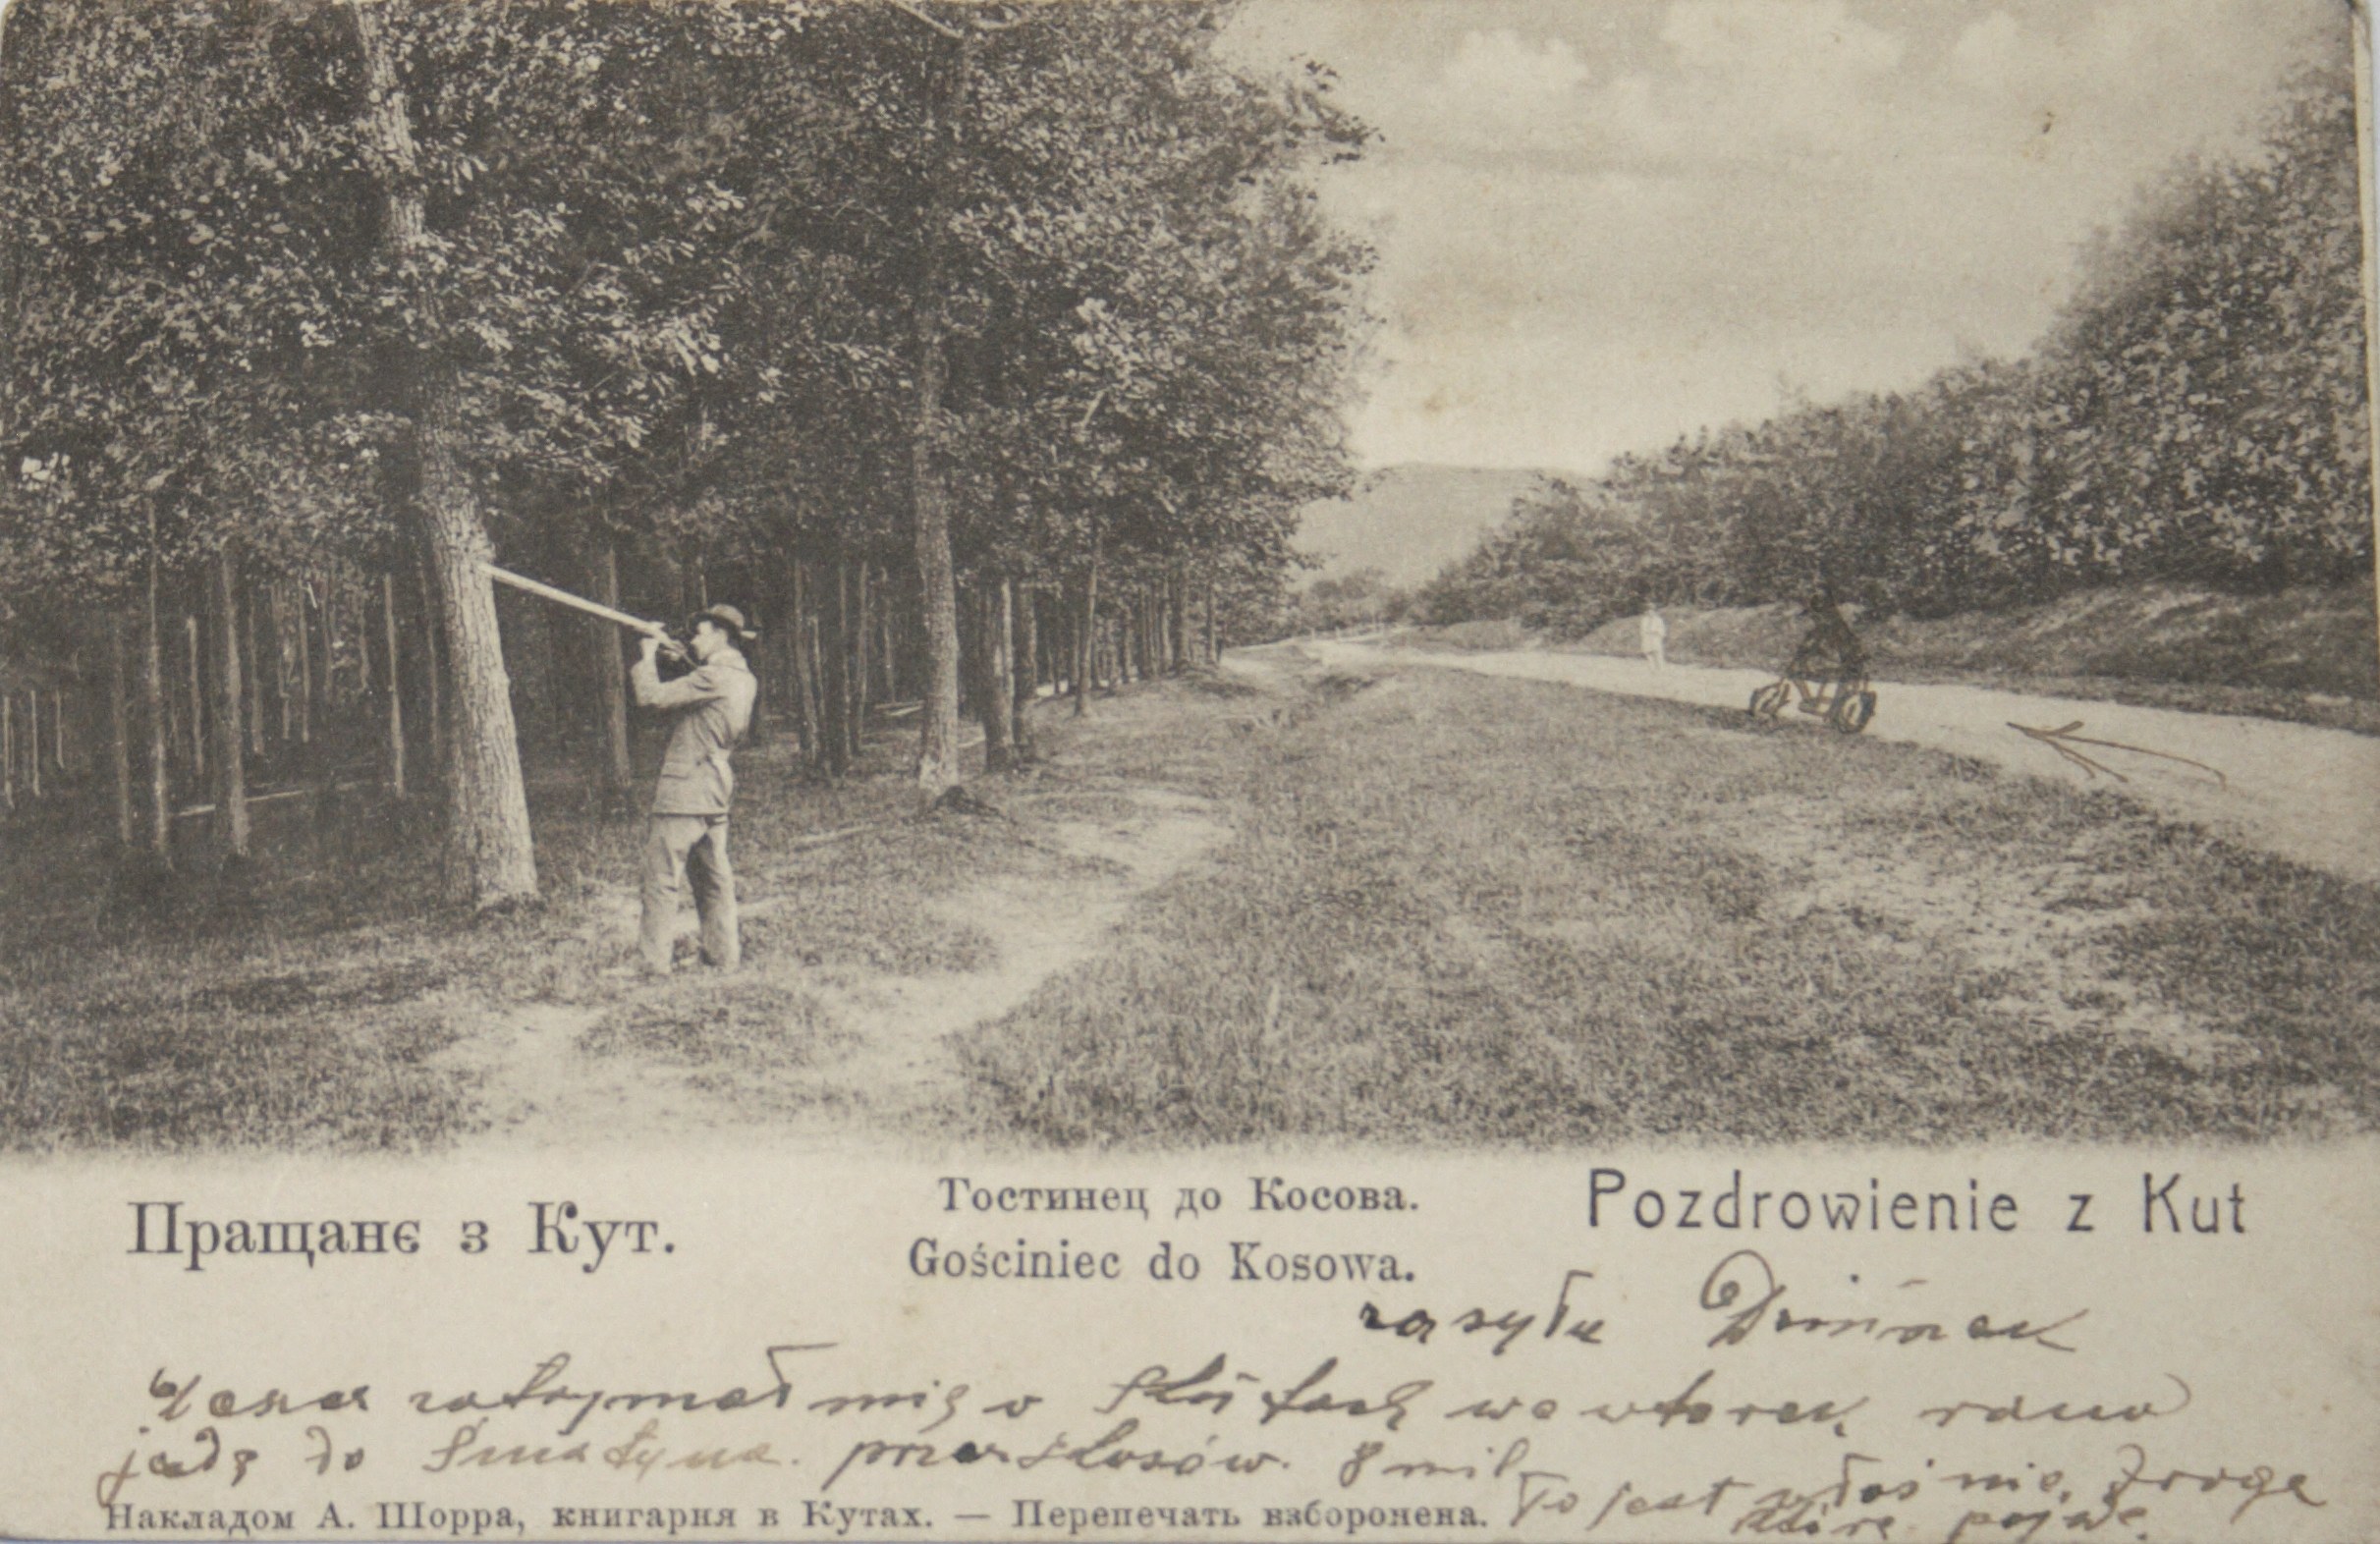 Пращанє з Кут.
Гостинец до Косова.
Gościniec do Kosowa.
Pozdrowienie z Kut
zasyła
zatrzymał mię w we wtorek rano
jadę do Śniatyna. przez Kosów. 8 mil
To jest właśnie droga
którą pojadę.
Накладом А. Шорра, книгарня в Кутах. — Перепечать взборонена.